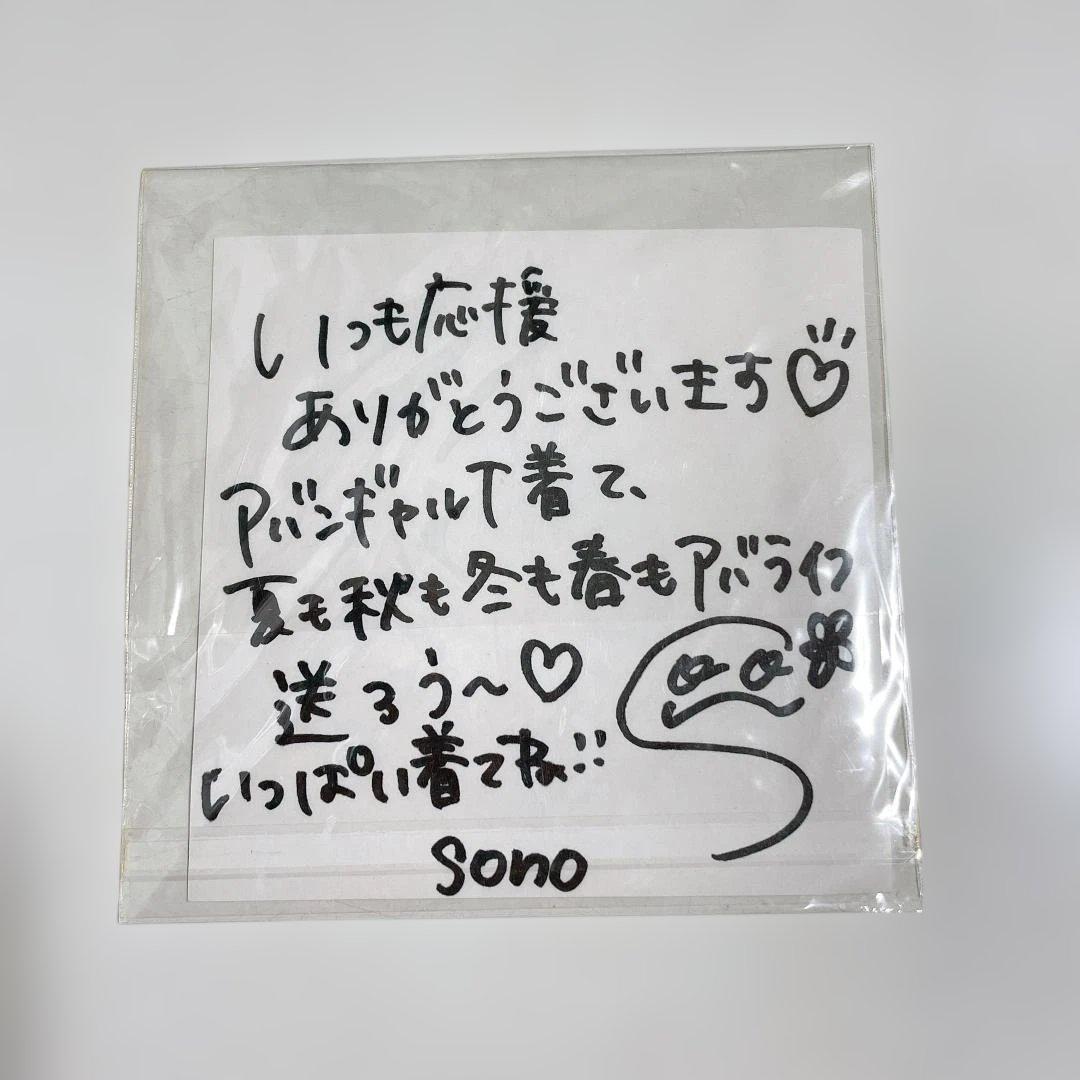 いつも応援
ありがとうございます♡
アバンギャルT着て、
夏も秋も冬も春もアバライフ
送ろう〜♡
いっぱい着てね!!
sono